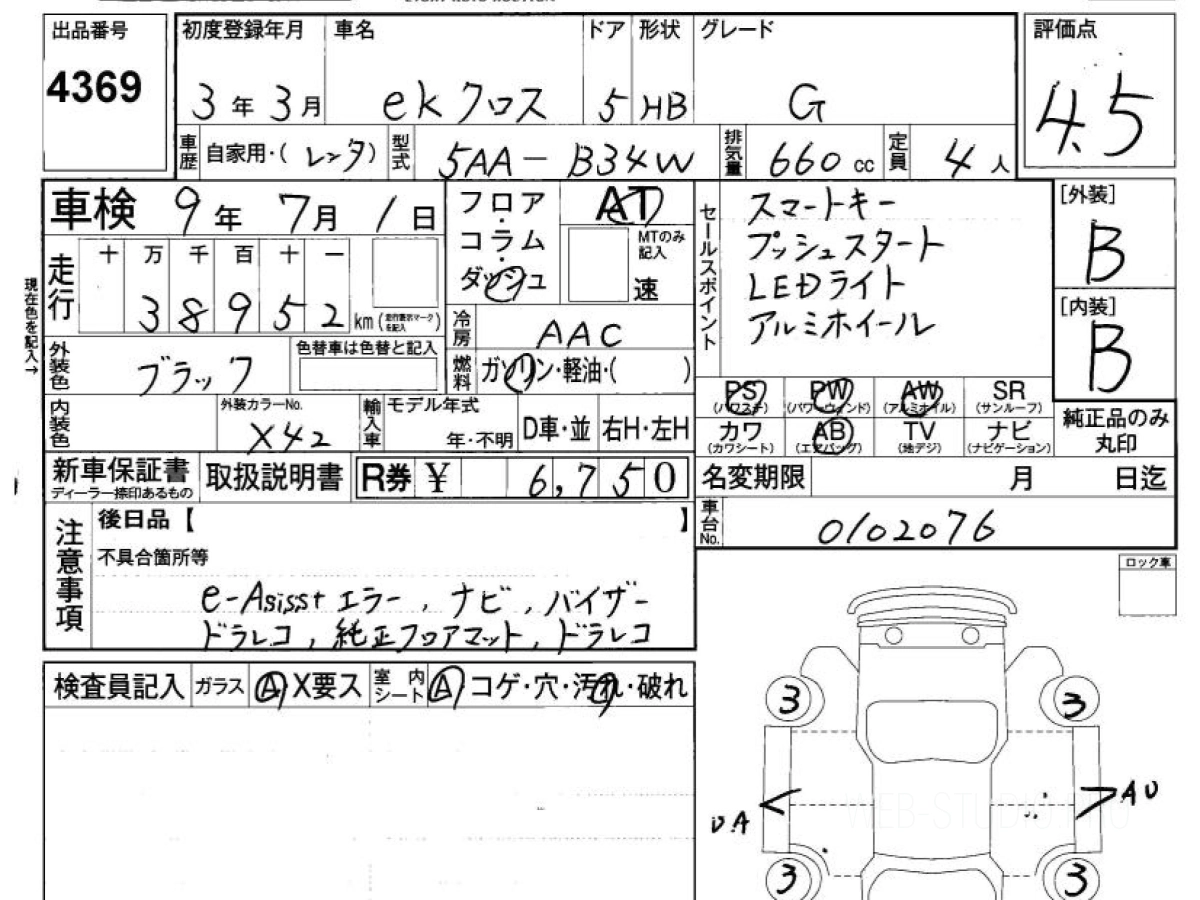 出品番号 4369
初度登録年月 3年3月
車名 ekクロス
ドア 5
形状 HB
グレード G
評価点 4.5
車歴 自家用・(レンタ)
型式 5AA-B34W
排気量 660cc
定員 4人
車検 9年7月1日
フロア・コラム・ダッシュ
AT
MTのみ記入
速
セールスポイント
スマートキー
プッシュスタート
LEDライト
アルミホイール
[外装] B
[内装] B
走行 十万千百十一
38952 km(走行表示マークを記入)
現在色を記入→
冷房 AAC
外装色 ブラック
色替車は色替と記入
燃料 ガソリン・軽油・( )
内装色
外装カラーNo. X42
輸入車 モデル年式
年・不明
D車・並
右H・左H
PS (パワステ)
PW (パワーウィンド)
AW (アルミホイル)
SR (サンルーフ)
カワ (カワシート)
AB (エアバッグ)
TV (地デジ)
ナビ (ナビゲーション)
純正品のみ丸印
新車保証書
ディーラー捺印あるもの
取扱説明書
R券 ¥ 6,750
名変期限 月 日迄
車台No. 0102076
注意事項
後日品【 】
不具合箇所等
e-Asisst エラー, ナビ, バイザー
ドラレコ, 純正フロアマット, ドラレコ
ロック車
検査員記入 ガラス A X要ス
室内シート A コゲ・穴・汚れ・破れ
3 3
UA AU
WEB-STUDIO.PRO
3 3